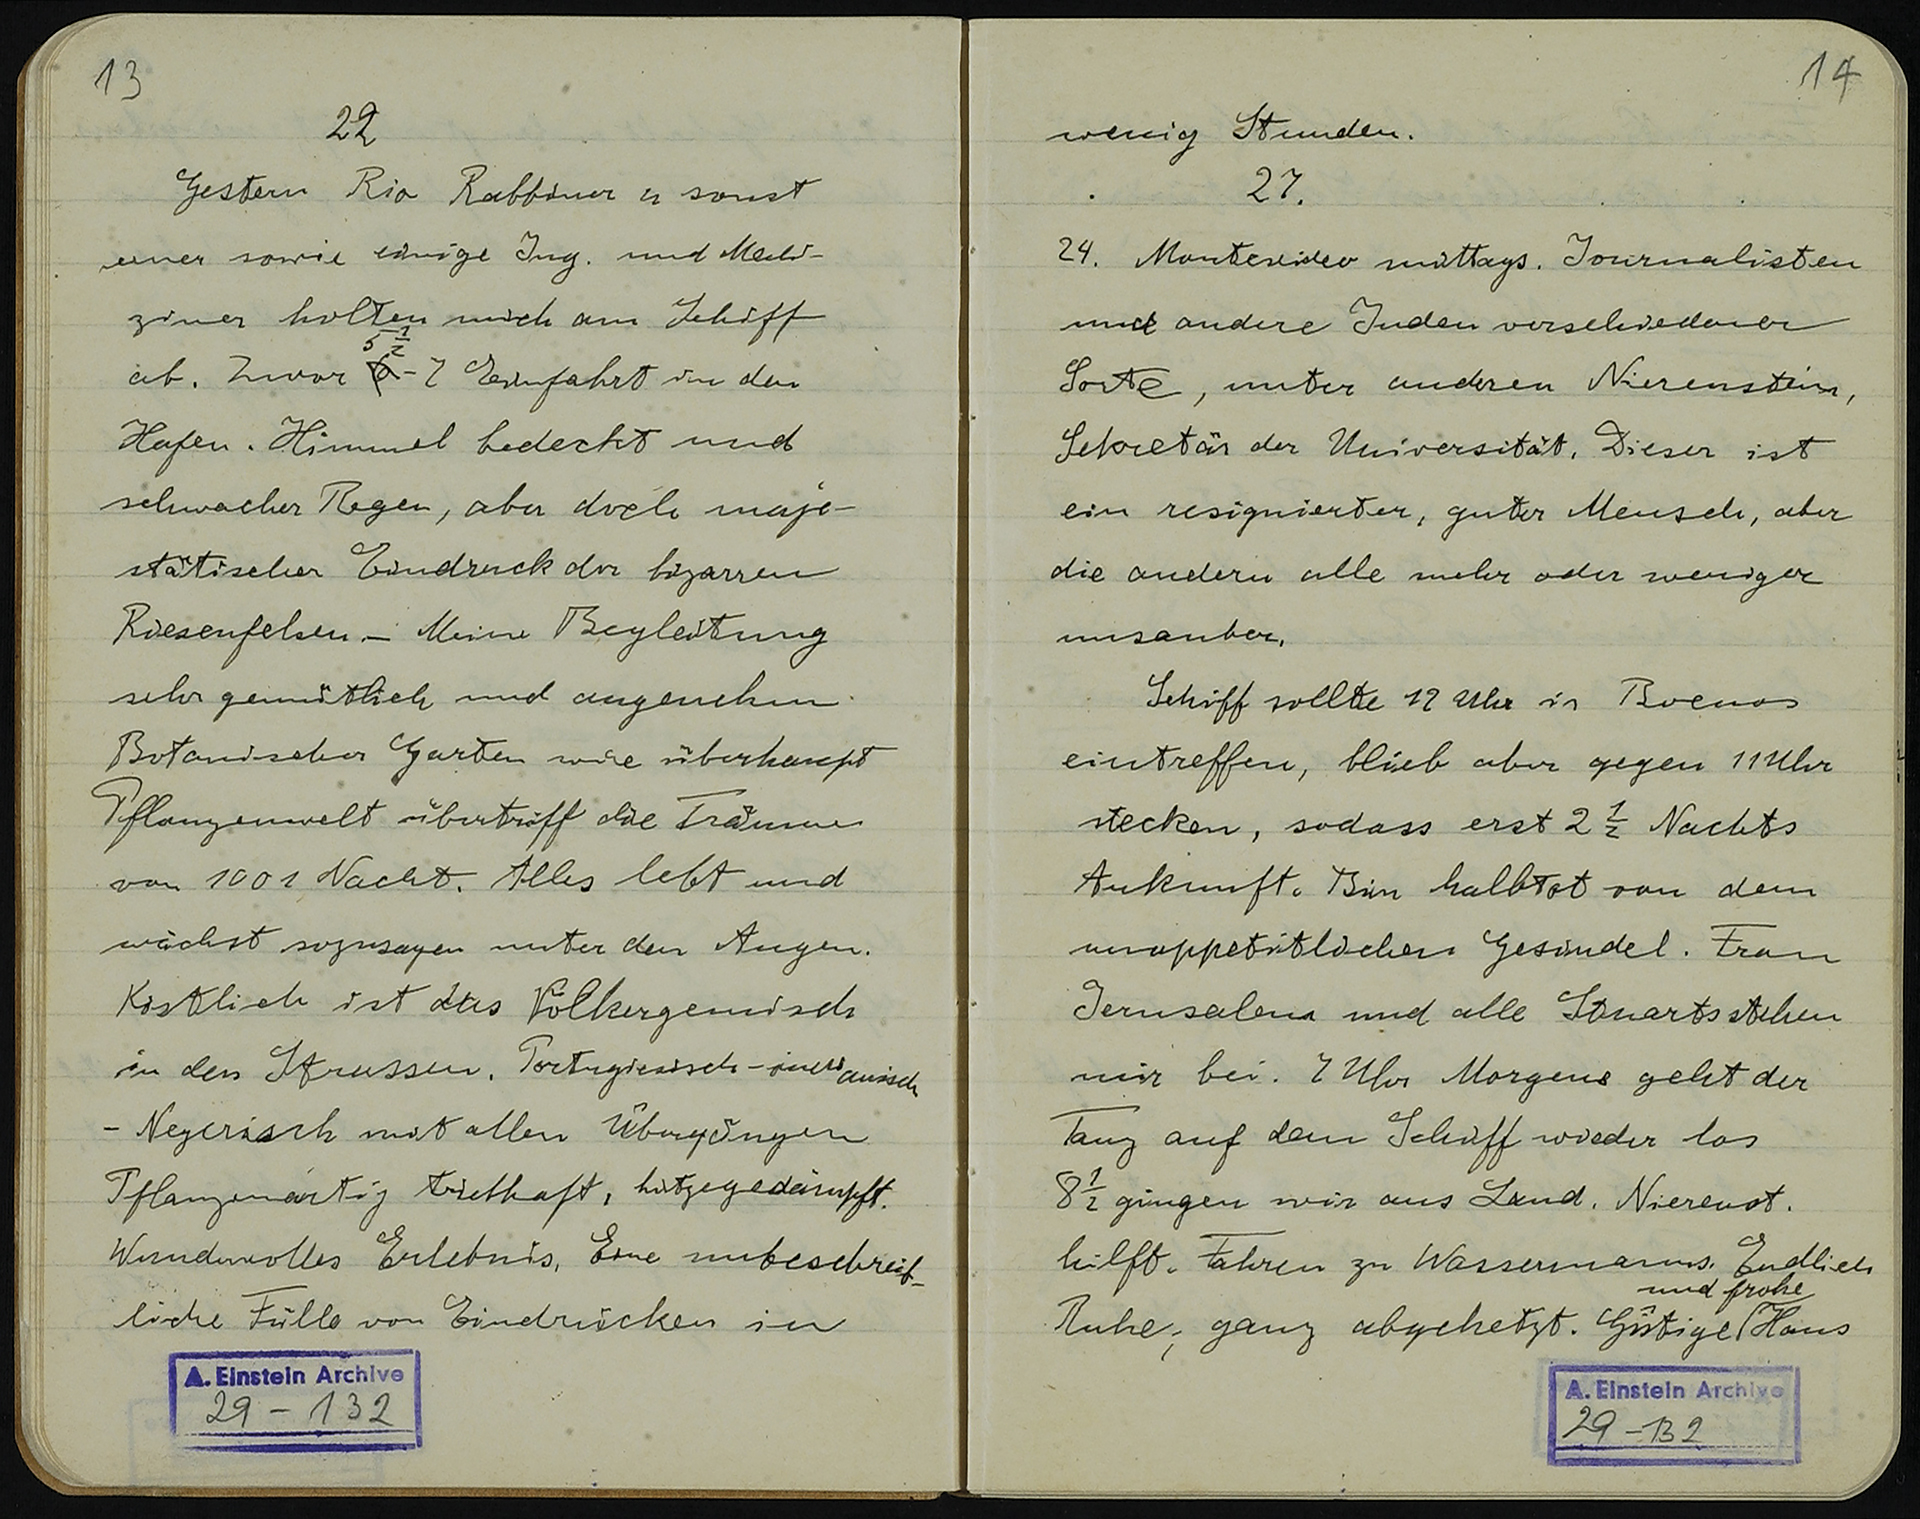 13
22
Gestern Rio Rabbiner u sonst
einer sowie einige Ing. und Medi-
ziner holten mich am Schiff
ab. Zuvor 5 1/2 - 7 Einfahrt in den
Hafen. Himmel bedeckt und
schwacher Regen, aber doch maje-
stätischer Eindruck der bizarren
Riesenfelsen. – Meine Begleitung
sehr gemütlich und angenehm
Botanischer Garten wie überhaupt
Pflanzenwelt übertriff die Träume
von 1001 Nacht. Alles lebt und
wächst sozusagen unter den Augen.
Köstlich ist das Völkergemisch
in den Strassen. Portugiesisch-indianisch
- Negerisch mit allen Übergängen
Pflanzenartig triebhaft, hitzegedämpft.
Wundervolles Erlebnis. Eine unbeschreib-
liche Fülle von Eindrücken in
A. Einstein Archive
29 - 132
14
wenig Stunden.
27.
24. Montevideo mittags. Journalisten
und andere Juden verschiedener
Sorte, unter anderen Nierenstein,
Sekretär der Universität. Dieser ist
ein resignierter, guter Mensch, aber
die andern alle mehr oder weniger
unsauber.
Schiff sollte 12 Uhr in Buenos
eintreffen, blieb aber gegen 11 Uhr
stecken, sodass erst 2 1/2 Nachts
Ankunft. Bin halbtot von dem
unappetitlichen Gesindel. Frau
Jerusalem und alle Stuarts stehen
mir bei. 7 Uhr Morgens geht der
Tanz auf dem Schiff wieder los
8 1/2 gingen wir ans Land. Nierenst.
hilft. Fahren zu Wassermanns. Endlich
Ruhe, ganz abgehetzt. Gütige und frohe Haus
A. Einstein Archive
29 - 132